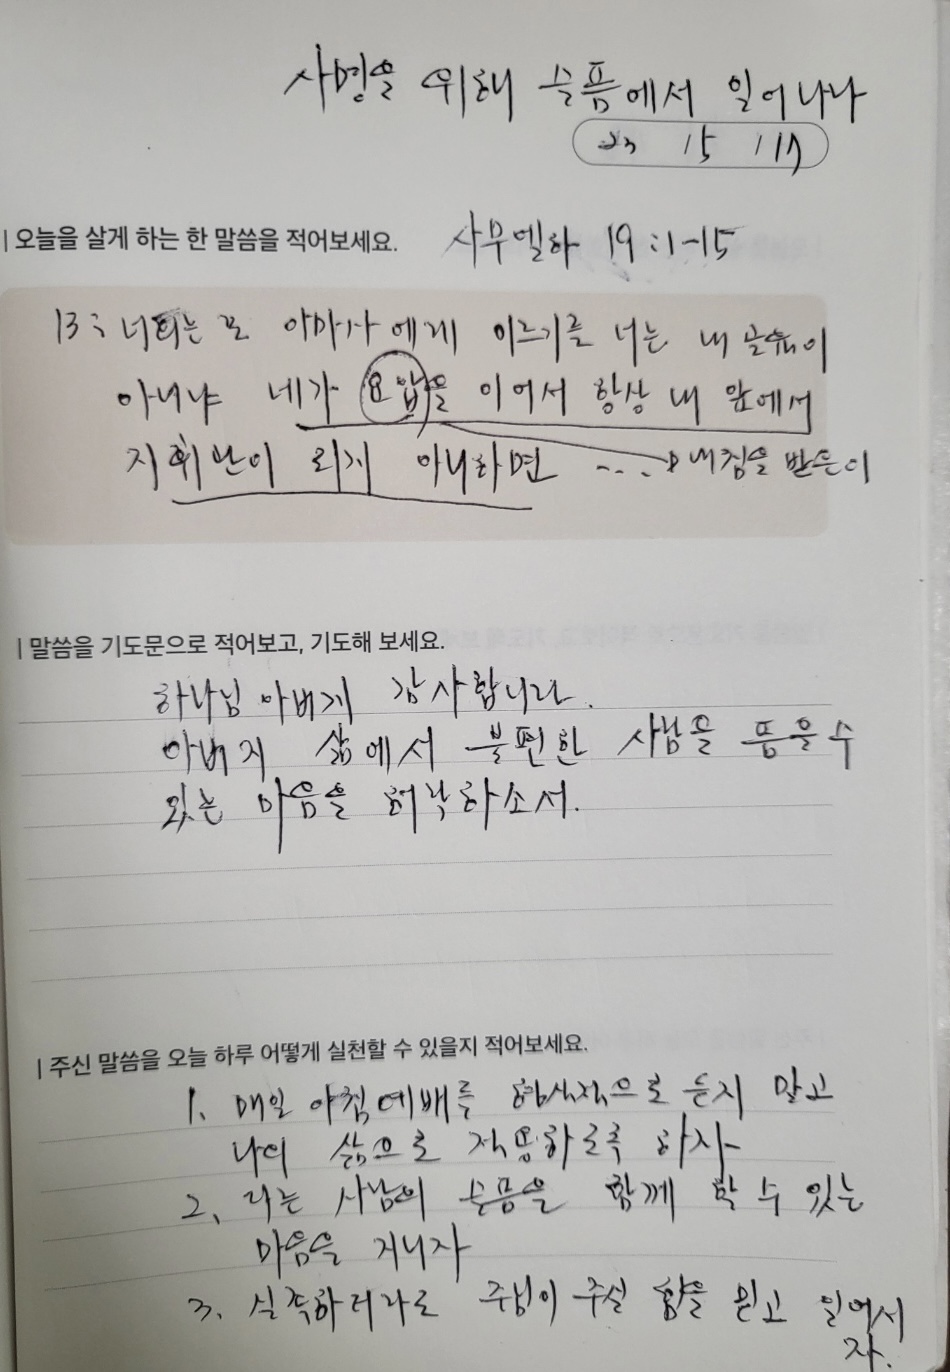 사명을 위해 슬픔에서 일어나나
15 117
| 오늘을 살게 하는 한 말씀을 적어보세요. 사무엘하 19:1-15
13: 너희는 또 아마사에게 이르기를 너는 내 골육이
아니냐 네가 요압을 이어서 항상 내 앞에서
지휘관이 되지 아니하면 .... 내침을 받은이
| 말씀을 기도문으로 적어보고, 기도해 보세요.
하나님 아버지 감사합니다.
아버지 삶에서 불편한 사람을 품을 수
있는 마음을 허락하소서.
| 주신 말씀을 오늘 하루 어떻게 실천할 수 있을지 적어보세요.
1. 매일 아침예배를 형식적으로 듣지 말고
나의 삶으로 적용하도록 하자
2. 다른 사람의 슬픔을 함께 할 수 있는
마음을 지니자
3. 실족하더라도 주님이 주실 힘을 믿고 일어서
자.